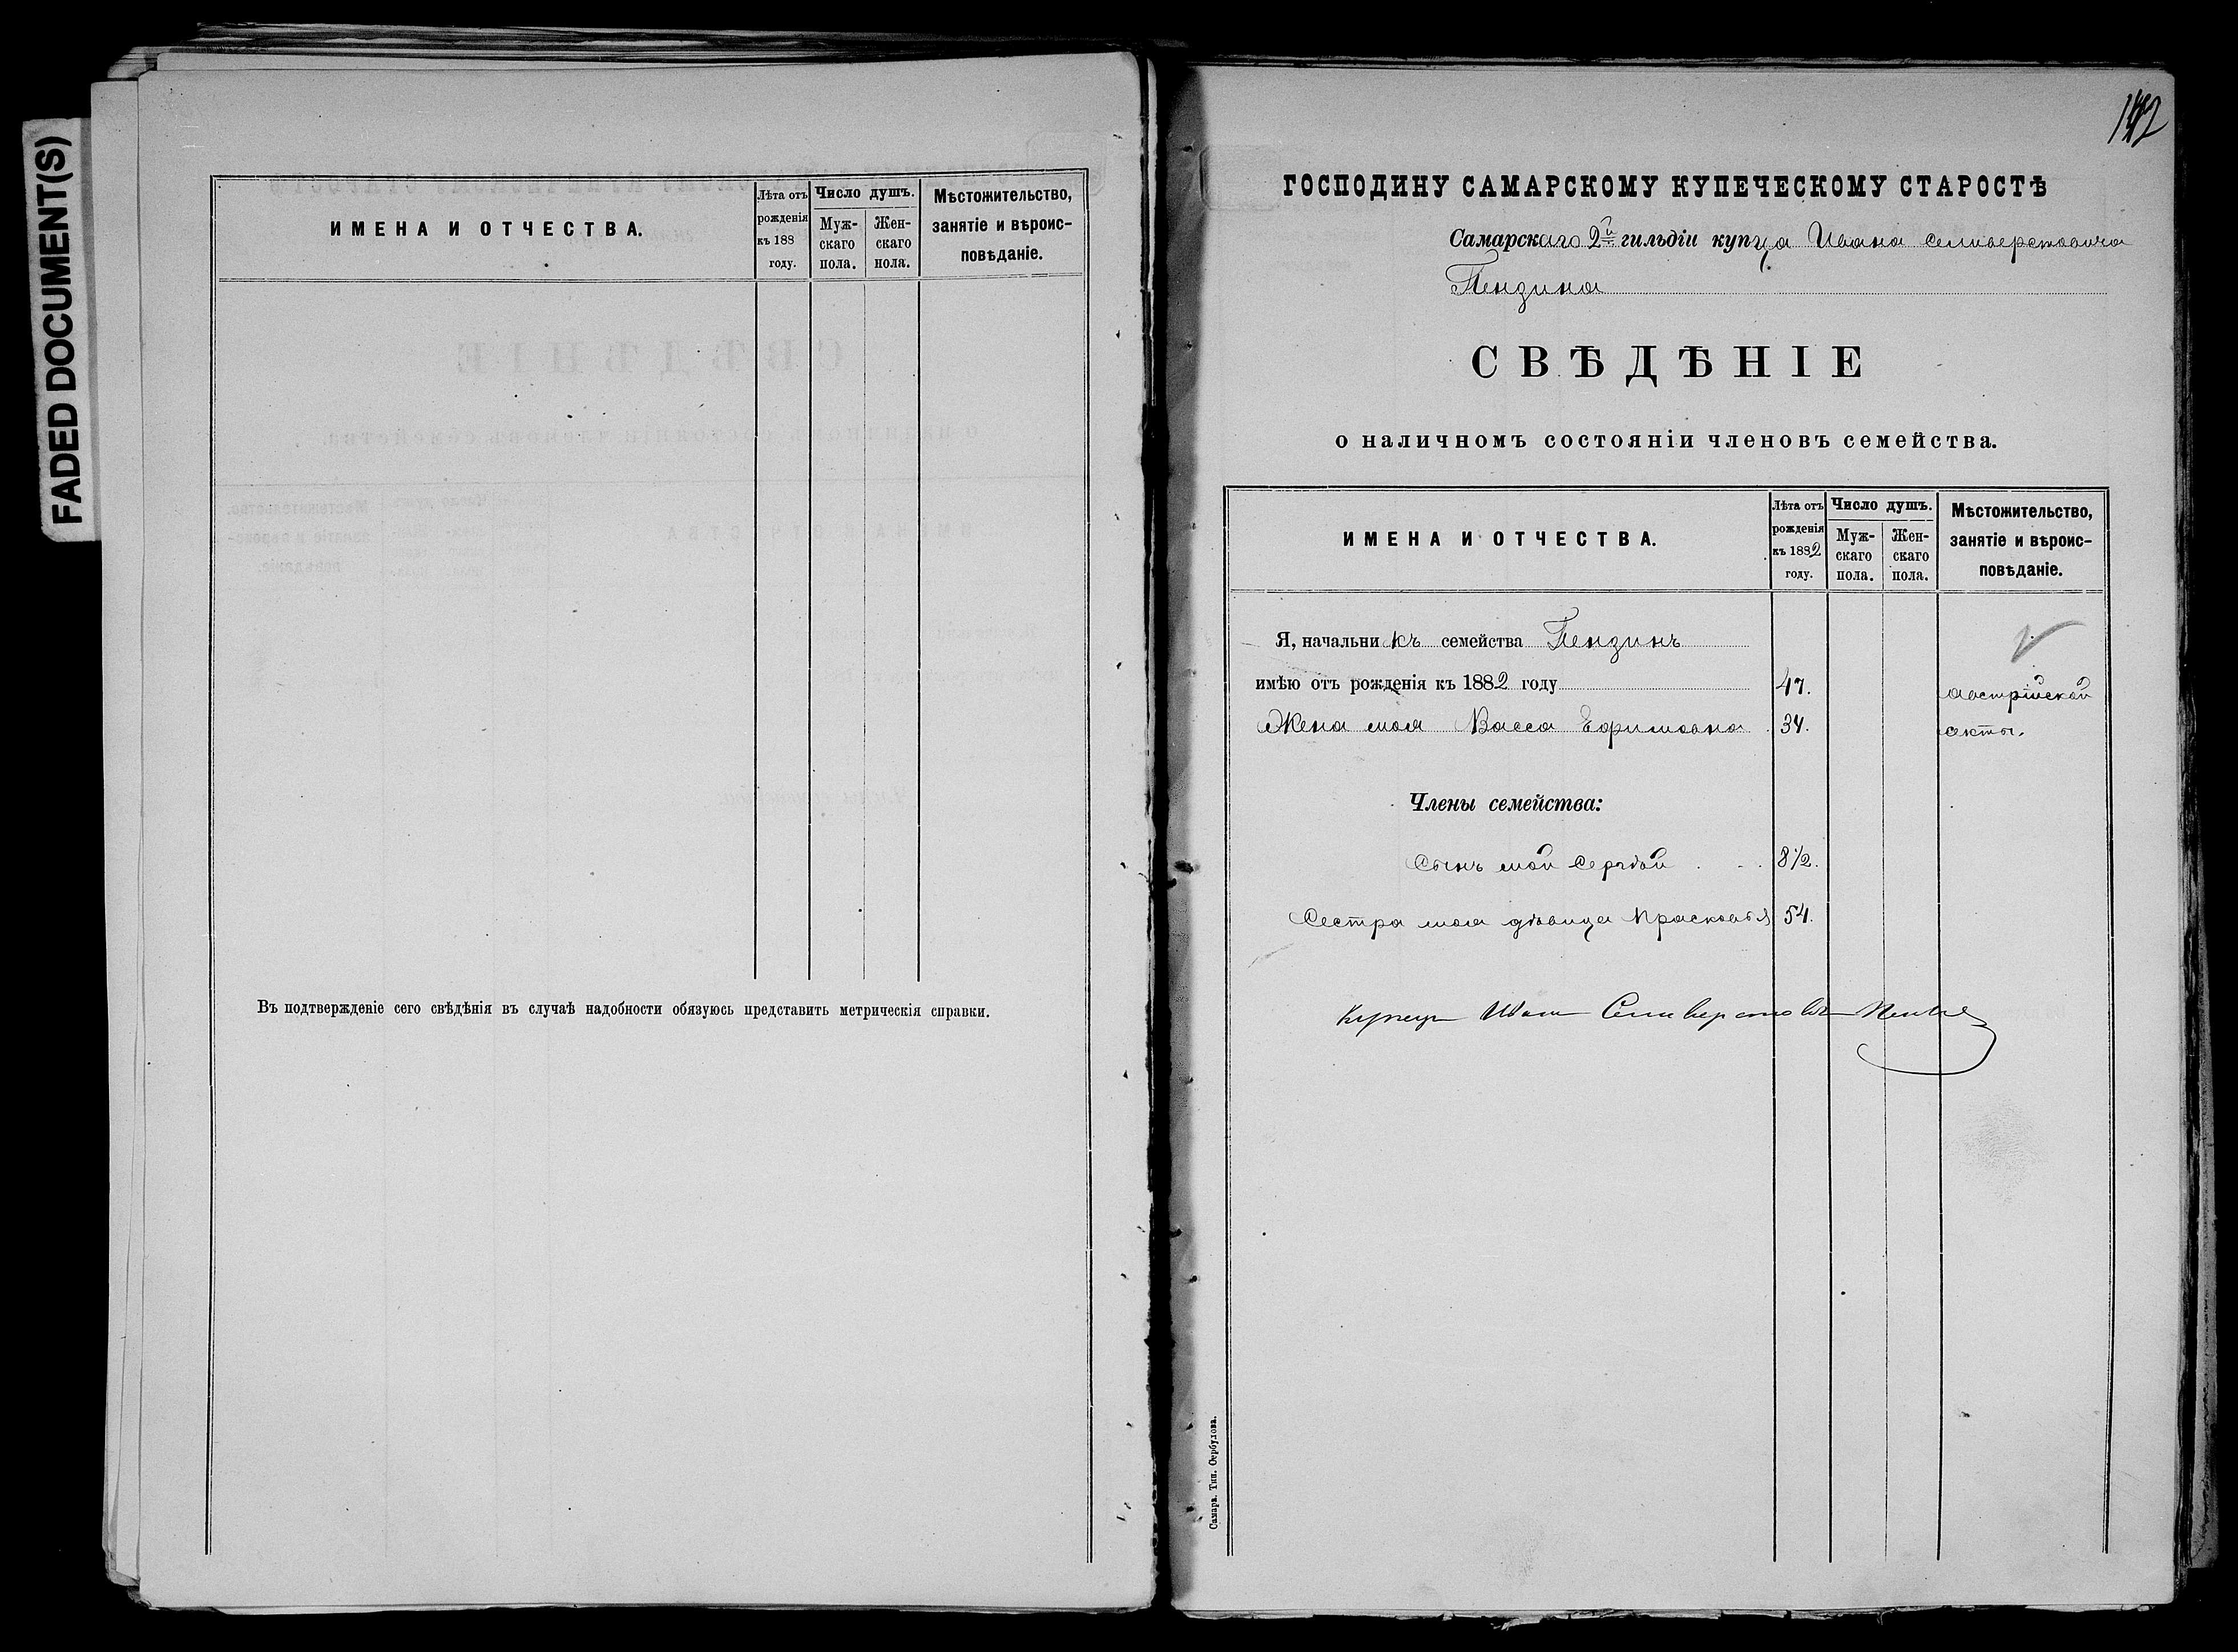 FADED DOCUMENT(S)
ИМЕНА И ОТЧЕСТВА.
Лѣта отъ рожденія къ 188 году.
Число душъ.
Муж-скаго пола.
Жен-скаго пола.
Мѣстожительство, занятіе и вѣроис-повѣданіе.
Въ подтвержденіе сего свѣдѣнія въ случаѣ надобности обязуюсь представить метрическія справки.
ГОСПОДИНУ САМАРСКОМУ КУПЕЧЕСКОМУ СТАРОСТѢ
Самарскаго 2й гильдіи купца Ивана Селиверстовича
Пензина
СВѢДѢНІЕ
о наличномъ состояніи членовъ семейства.
ИМЕНА И ОТЧЕСТВА.
Лѣта отъ рожденія къ 1882 году.
Число душъ.
Муж-скаго пола.
Жен-скаго пола.
Мѣстожительство, занятіе и вѣроис-повѣданіе.
Я, начальникъ семейства Пензинъ
имѣю отъ рожденія къ 1882 году 47. Австрійской
Жена моя Васса Ефимовна 34. секты.
Члены семейства:
Сынъ мой Сергѣй 8 1/2.
Сестра моя дѣвица Прасковья 54.
Купецъ Иванъ Селиверстовъ Пензинъ
Самара. Тип. Осрбулова.